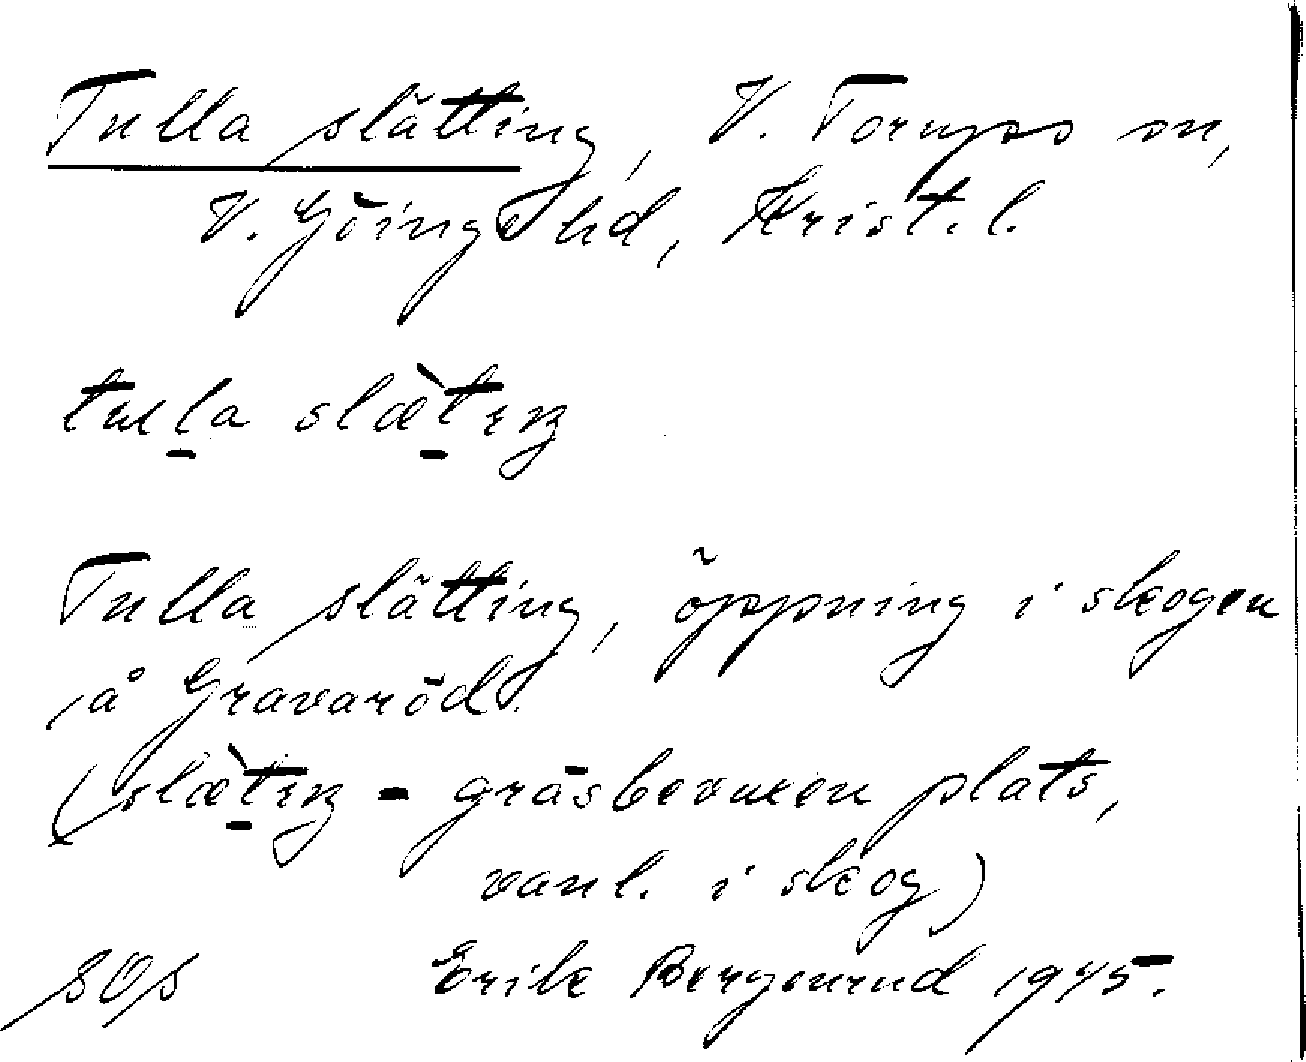 Tulla slätting, V. Torups sn,
V. Göinge hd, Krist. l.
tulla slæ̀tıŋ
Tulla slätting, öppning i skogen
å Gravaröd.
(slæ̀tıŋ = gräsbevuxen plats,
vanl. i skog)
SOp Erik Bergenrud 1945.